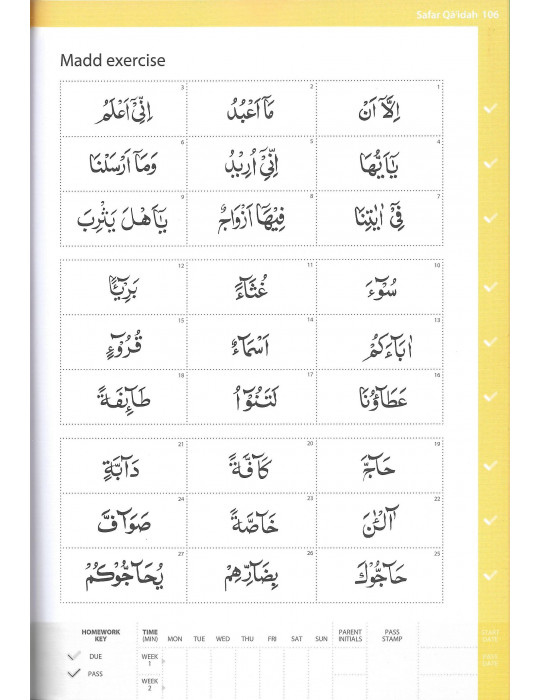 Safar Qā'idah 106
Madd exercise
1 اِلَّاۤ اَنْ 2 مَاۤ اَعْبُدُ 3 اِنِّيْۤ اَعْلَمُ
4 يٰۤاَيُّهَا 5 اِنِّيْۤ اُرِيْدُ 6 وَمَاۤ اَرْسَلْنَا
7 فِيْۤ اٰيٰتِنَا 8 فِيْهَاۤ اَزْوَاجٌ 9 يٰۤاَهْلَ يَثْرِبَ
10 سُوْٓءَ 11 غُثَآءً 12 بَرِيْٓـًٔا
13 اٰبَآءَكُمْ 14 اَسْمَآءٌ 15 قُرُوْٓءٍ
16 عَطَآؤُنَا 17 لَتَنُوْٓاُ 18 طَآئِفَةً
19 حَآجَّ 20 كَآفَّةً 21 دَآبَّةٍ
22 آٰلْـٰٔنَ 23 خَآصَّةً 24 صَوَآفَّ
25 حَآجُّوْكَ 26 بِضَآرِّهِمْ 27 يُحَآجُّوْكُمْ
HOMEWORK KEY
DUE
PASS
TIME (MIN) MON TUE WED THU FRI SAT SUN PARENT INITIALS PASS STAMP START DATE
WEEK 1
WEEK 2